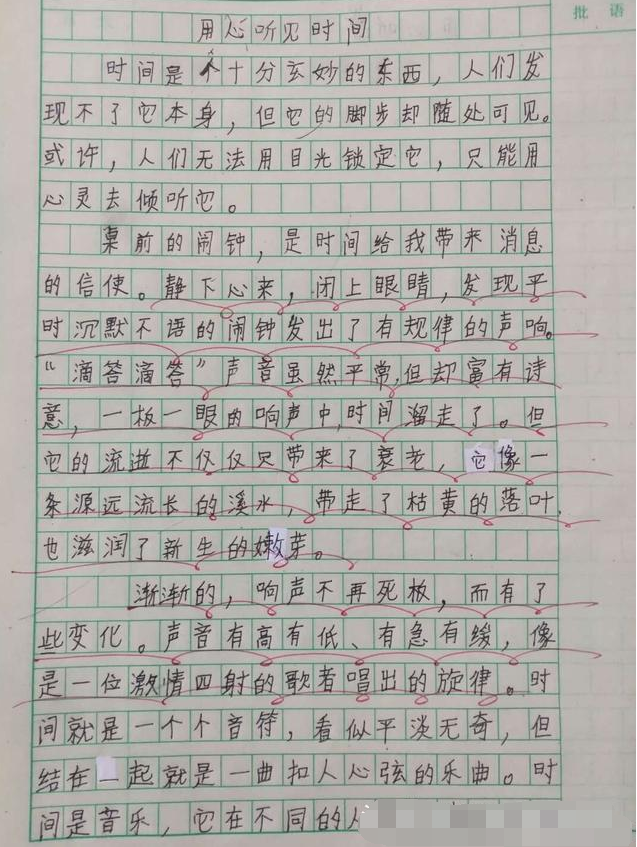 批 语
用心听见时间
时间是个十分玄妙的东西，人们发
现不了它本身，但它的脚步却随处可见。
或许，人们无法用目光锁定它，只能用
心灵去倾听它。
桌前的闹钟，是时间给我带来消息
的信使。静下心来，闭上眼睛，发现平
时沉默不语的闹钟发出了有规律的声响。
“滴答滴答”声音虽然平常，但却富有诗
意，一板一眼的响声中，时间溜走了。但
它的流逝不仅仅只带来了衰老，它像一
条源远流长的溪水，带走了枯黄的落叶，
也滋润了新生的嫩芽。
渐渐的，响声不再死板，而有了
些变化。声音有高有低、有急有缓，像
是一位激情四射的歌者唱出的旋律。时
间就是一个个音符，看似平淡无奇，但
结在一起就是一曲扣人心弦的乐曲。时
间是音乐，它在不同的人